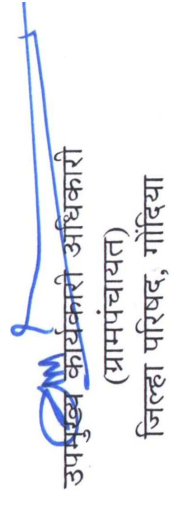 उपमुख्य कार्यकारी अधिकारी
(ग्रामपंचायत)
जिल्हा परिषद, गोंदिया